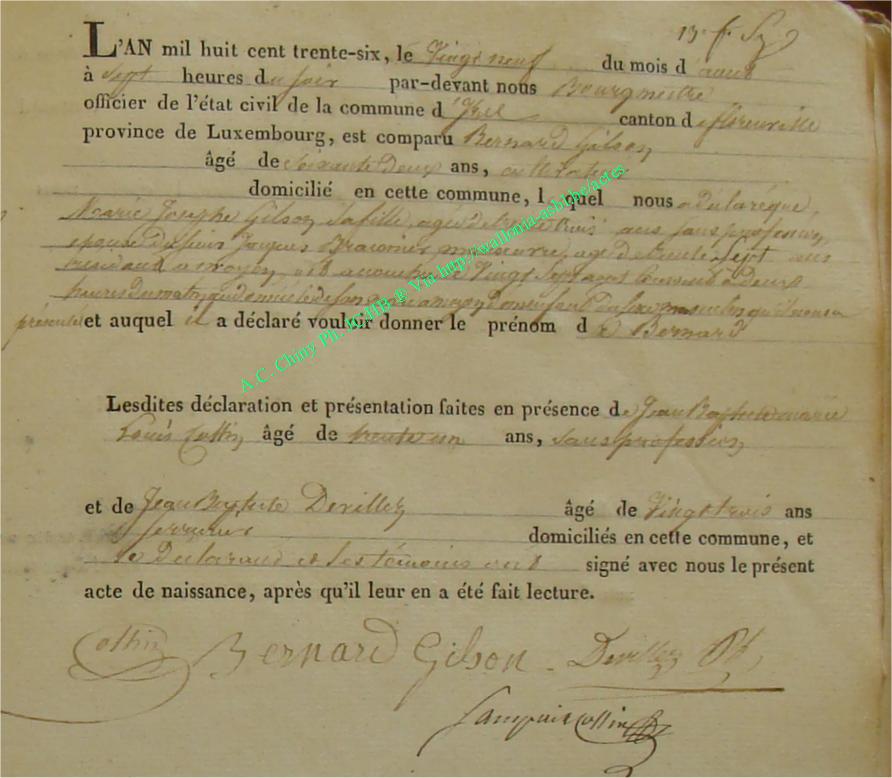 L'AN mil huit cent trente-six, le Vingt neuf du mois d'aout
à Sept heures du soir par-devant nous Bourgmestre
officier de l'état civil de la commune d'Izel canton de florenville
province de Luxembourg, est comparu Bernard Gilson
âgé de soixante deux ans, cultivateur
domicilié en cette commune, lequel nous a déclaré que
Marie Josephe Gilson sa fille, agée de trente trois ans sans profession
epouse du sieur Jacques manoeuvre, agé de trente Sept ans
a moyen, est accouchée le Vingt Sept aout courant a deux
heures du matin au domicile de son a moyen d'un enfant du sexe masculin qu'il nous a
présenté et auquel il a déclaré vouloir donner le prénom de Bernard
A.C. Chiny Ph. ICHB ® Via http://wallonia-asbl.be/actes.
Lesdites déclaration et présentation faites en présence de Jean Baptiste marie
Louis Collin âgé de trente un ans, sans profession
et de Jean Baptiste Devillez âgé de Vingt trois ans
serrurier domiciliés en cette commune, et
le Declarant et les témoins ont signé avec nous le présent
acte de naissance, après qu'il leur en a été fait lecture.
Collin Bernard Gilson Devillez
Collin